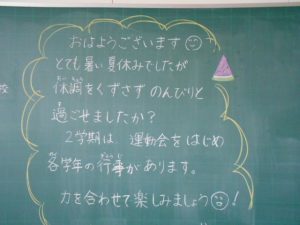 おはようございます
とても暑い夏休みでしたが
体調をくずさず のんびりと
過ごせましたか？
2学期は、運動会をはじめ
各学年の行事があります。
力を合わせて楽しみましょう！
校